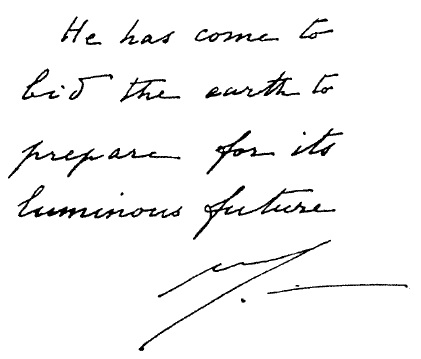 He has come to
bid the earth to
prepare for its
luminous future